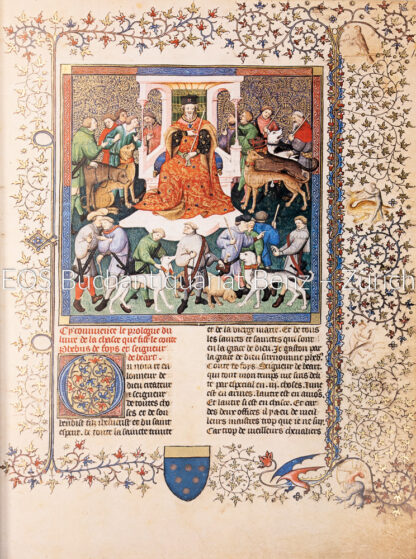 EOS Buchantiquariat Benz – Zürich
Cy commence le prologue du
livre de la chasse que fist le conte
Phebus de foys et seigneur
de bearn.
Ou nom et en
honneur de
dieu createur
et seigneur
de toutes cho
ses et de son
benoist filz jhesucrist et du saint
esperit. de toute la saincte trinite
et de la vierge marie. Et de tous
les saincts et sainctes qui sont
en la grace de dieu. Je gaston par
la grace de dieu surnomme pheb.
Conte de foys. Seigneur de bearn.
qui tout mon temps me suis delic
te par especial en .iii. choses. lune
est en armes. lautre est en amours.
Et lautre si est en chasce. Et car
des deux offices il y a eu de meil
leurs maistres trop que je ne sui.
Car trop de meilleurs chevaliers